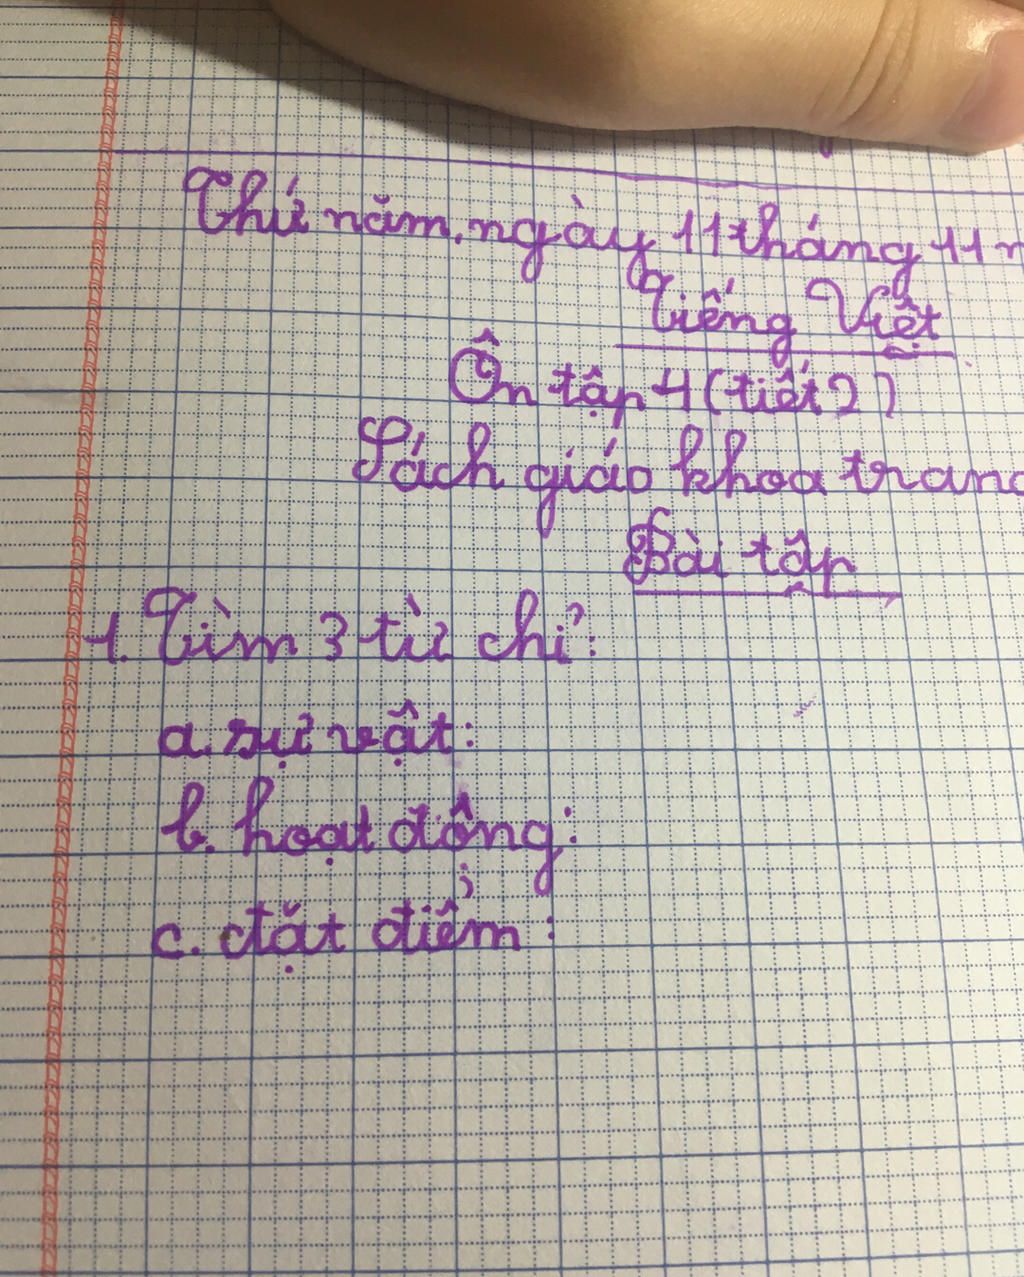 Thứ năm, ngày 11 tháng 11
Tiếng Việt
Ôn tập 4 (tiết 2)
Sách giáo khoa trang
Bài tập
1. Tìm 3 từ chỉ:
a. sự vật:
b. hoạt động:
c. đặt điểm: